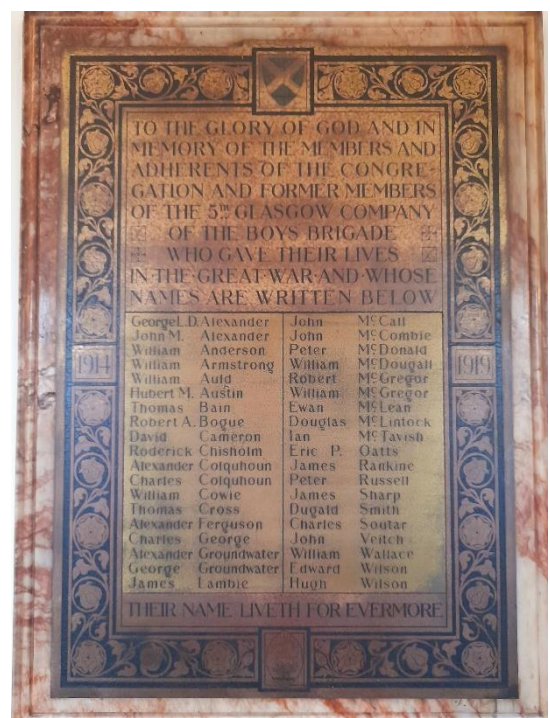 TO THE GLORY OF GOD AND IN
MEMORY OF THE MEMBERS AND
ADHERENTS OF THE CONGRE-
GATION AND FORMER MEMBERS
OF THE 5TH GLASGOW COMPANY
OF THE BOYS BRIGADE
WHO GAVE THEIR LIVES
IN·THE·GREAT·WAR·AND·WHOSE
NAMES ARE WRITTEN BELOW
1914
1919
George L.D. Alexander
John M. Alexander
William Anderson
William Armstrong
William Auld
Hubert M. Austin
Thomas Bain
Robert A. Bogue
David Cameron
Roderick Chisholm
Alexander Colquhoun
Charles Colquhoun
William Cowie
Thomas Cross
Alexander Ferguson
Charles George
Alexander Groundwater
George Groundwater
James Lambie
John McCall
John McCombie
Peter McDonald
William McDougall
Robert McGregor
William McGregor
Ewan McLean
Douglas McLintock
Ian McTavish
Eric P. Oatts
James Rankine
Peter Russell
James Sharp
Dugald Smith
Charles Soutar
John Veitch
William Wallace
Edward Wilson
Hugh Wilson
THEIR NAME LIVETH FOR EVERMORE